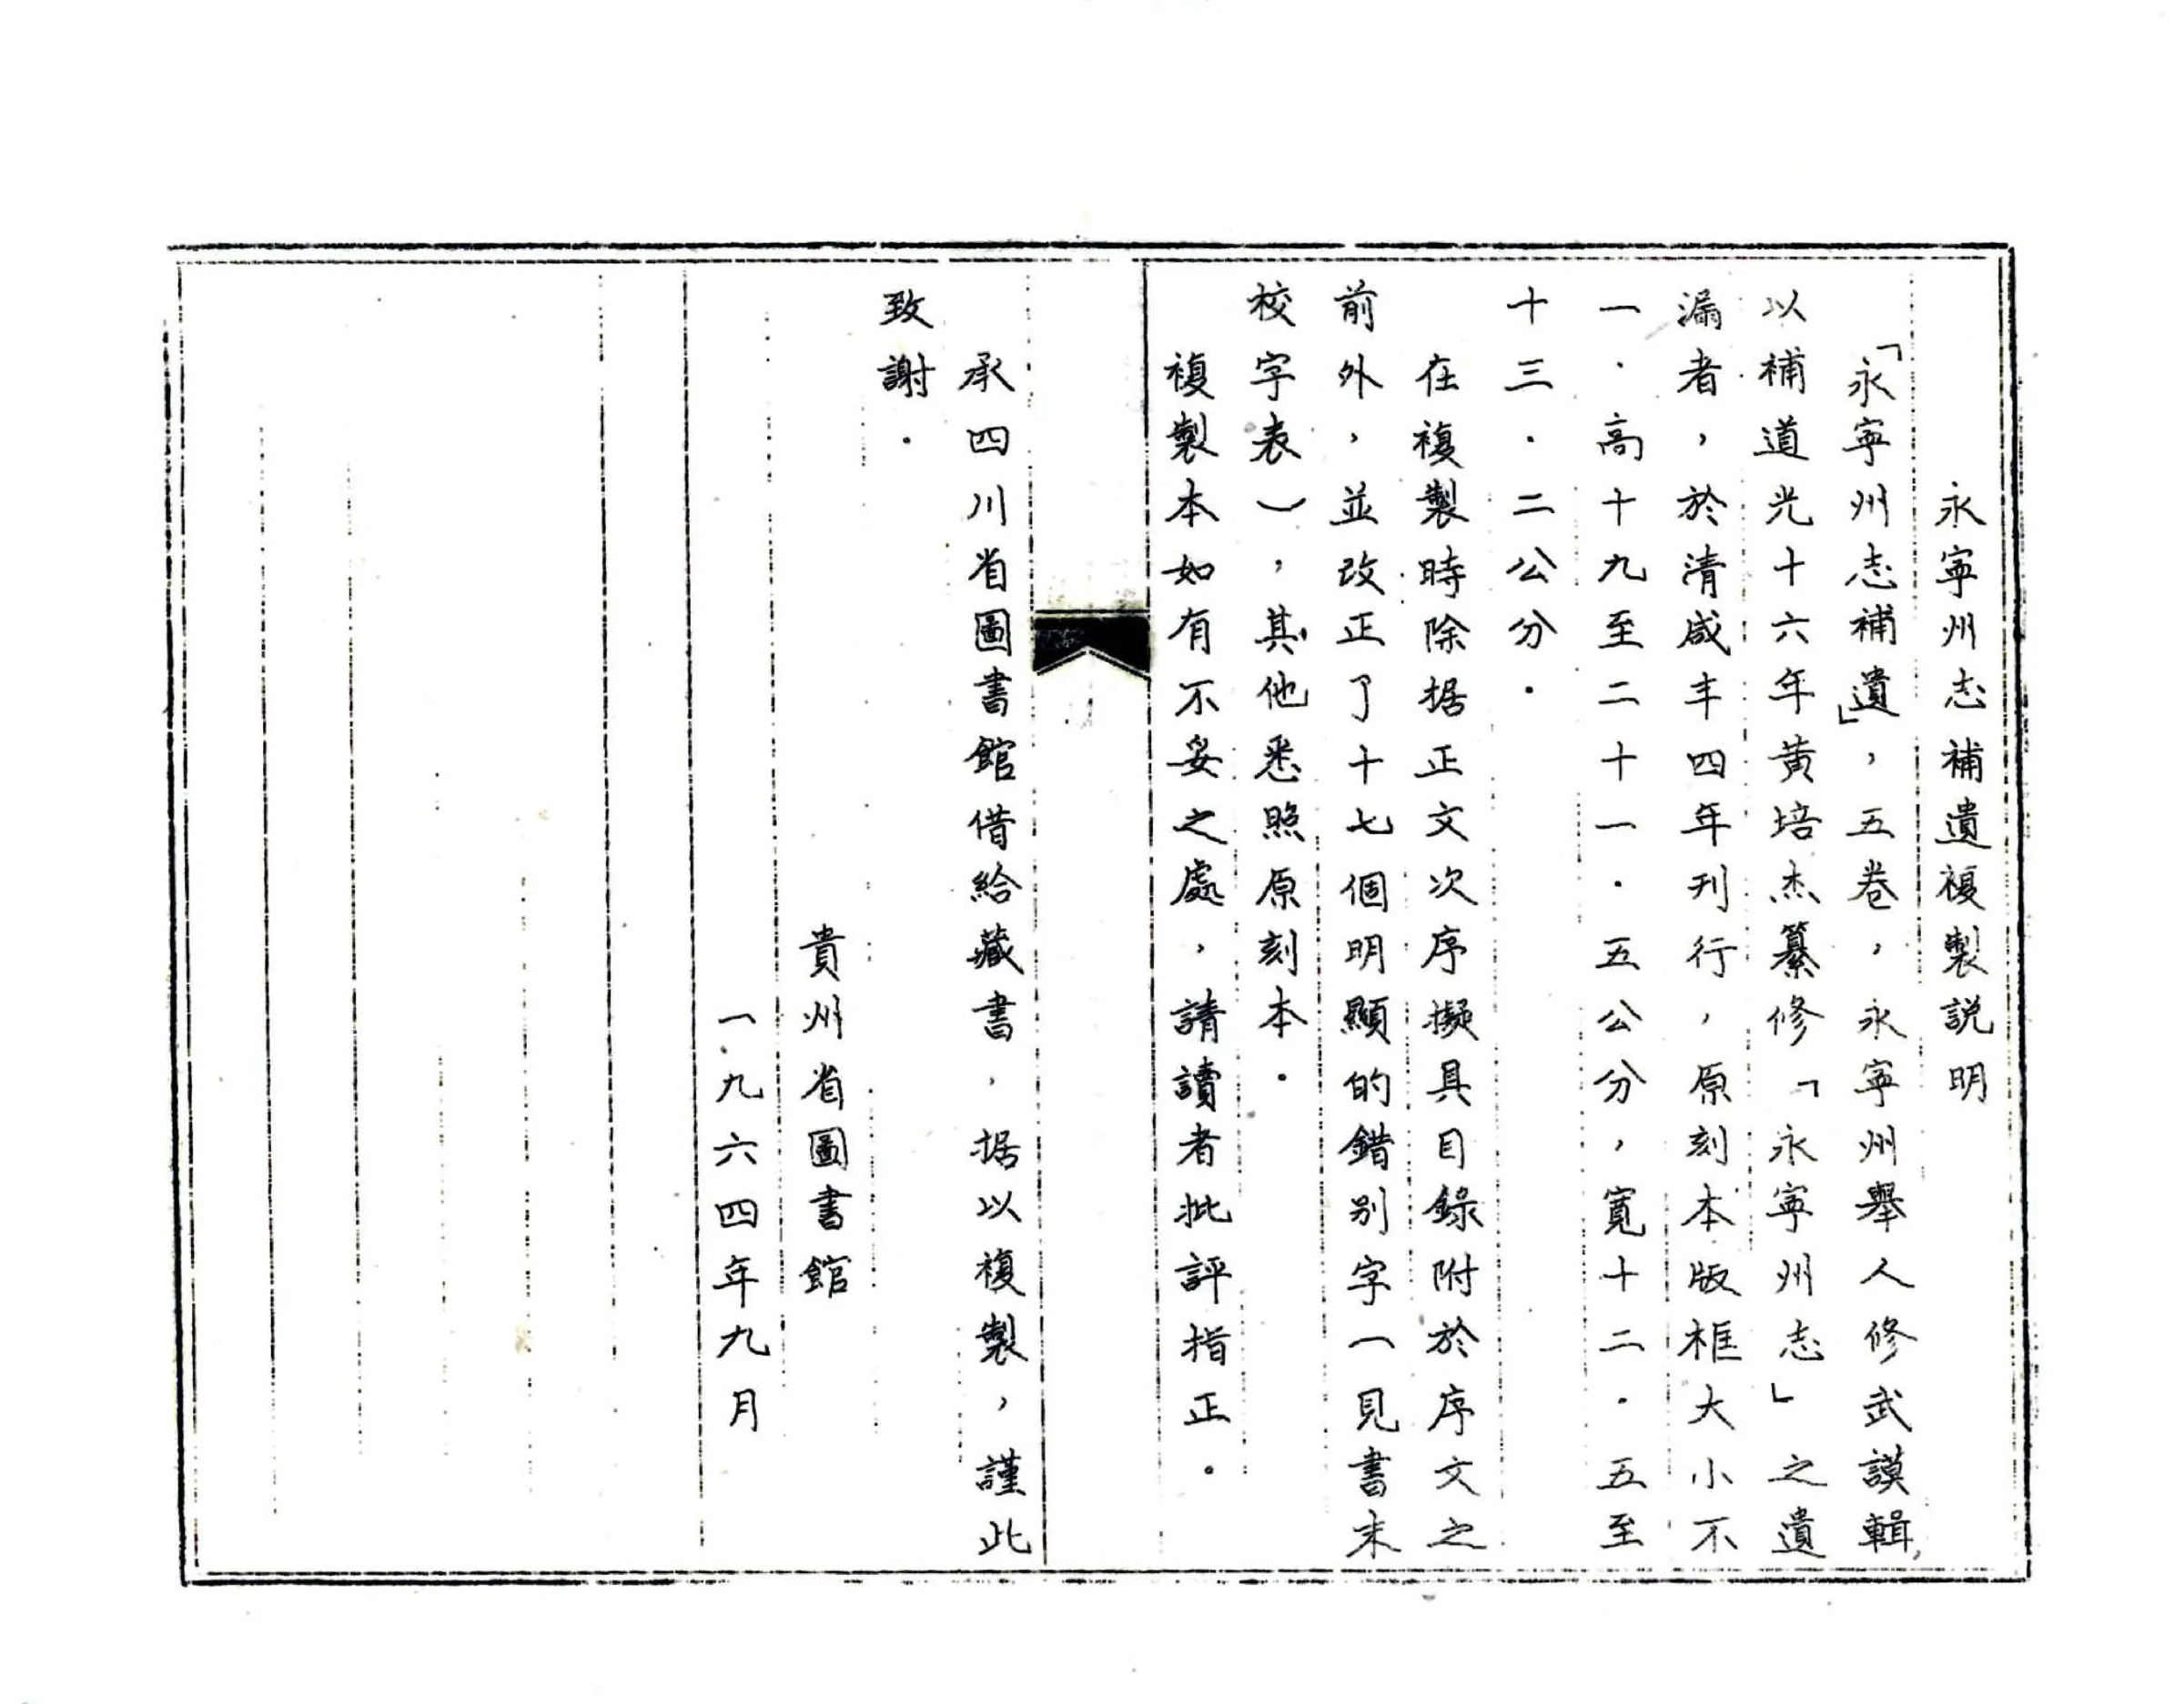 永寧州志補遺複製説明
「永寧州志補遺」，五卷，永寧州舉人修武謨輯，
以補道光十六年黄培杰纂修「永寧州志」之遺
漏者，於清咸丰四年刊行，原刻本版框大小不
一．高十九至二十一．五公分，寬十二．五至
十三．二公分．
在複製時除据正文次序擬具目錄附於序文之
前外，並改正了十七個明顯的錯别字︵見書末
校字表︶，其他悉照原刻本．
複製本如有不妥之處，請讀者批評指正。
承四川省圖書館借給藏書，据以複製，謹此
致謝．
貴州省圖書館
一九六四年九月